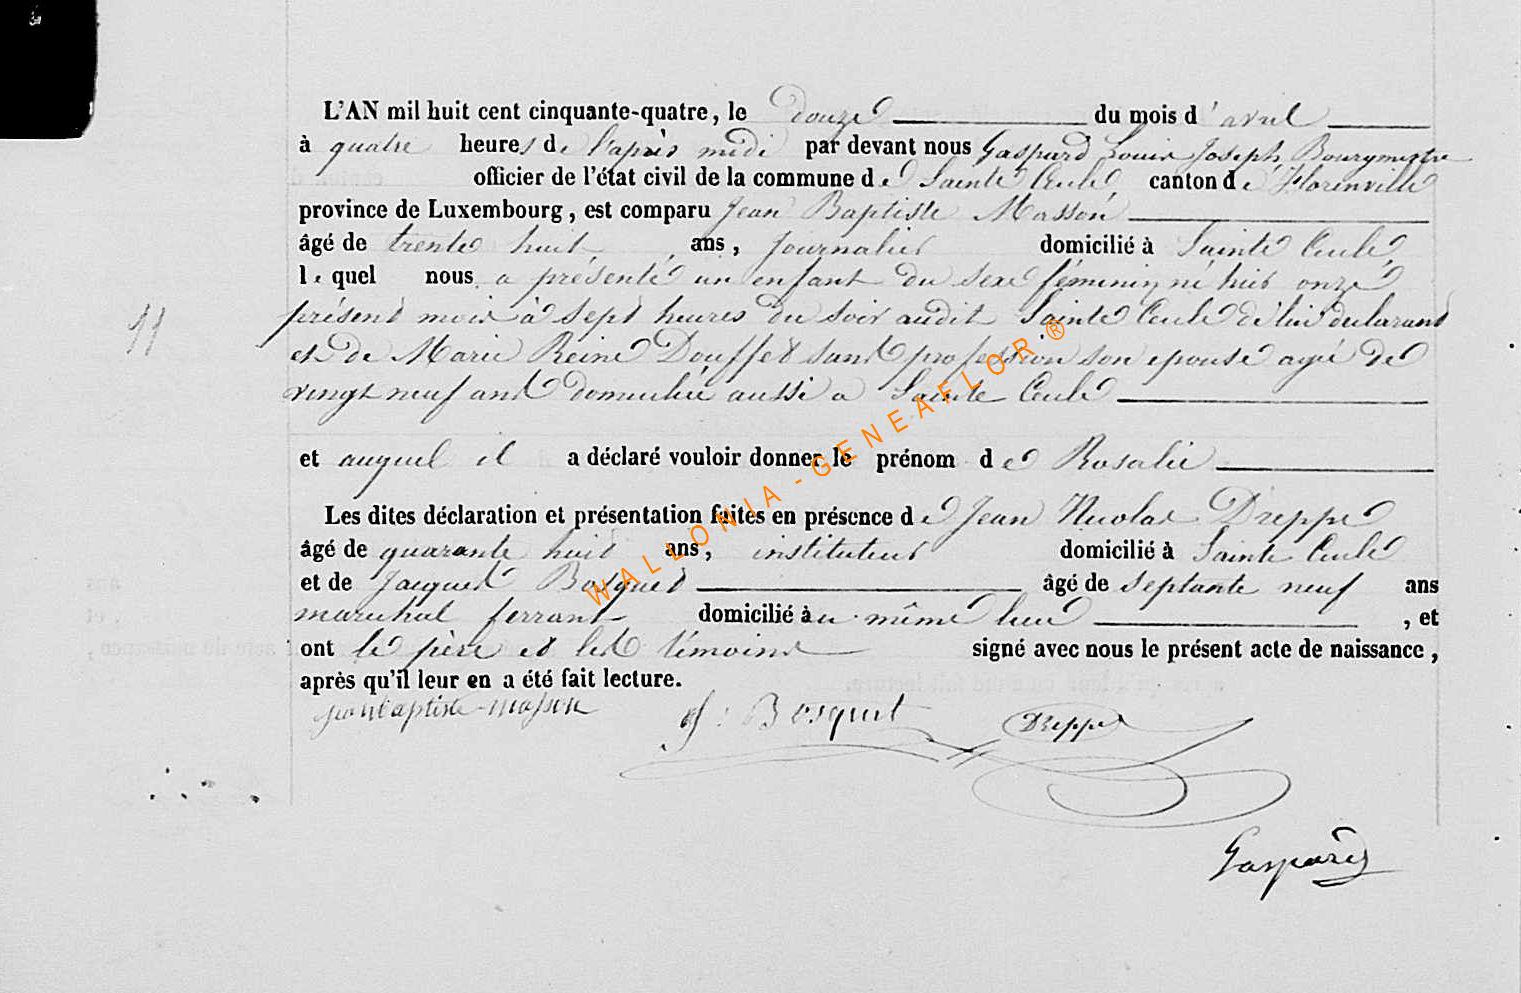 L'AN mil huit cent cinquante-quatre, le douze du mois d'avril
à quatre heures de l'après midi par devant nous Gaspard Louis Joseph, Bourgmestre
officier de l'état civil de la commune de Sainte Cecile, canton de Florenville
province de Luxembourg, est comparu Jean Baptiste Masson
âgé de trente huit ans, journalier domicilié à Sainte Cecile,
lequel nous a présenté un enfant du sexe féminin né hier onze
présent mois à sept heures du soir audit Sainte Cecile de lui déclarant
et de Marie Reine Douffet sans profession son epouse agée de
vingt neuf ans domiciliée aussi a Sainte Cecile
11
et auquel il a déclaré vouloir donner le prénom de Rosalie
Les dites déclaration et présentation faites en présence de Jean Nicolas Dreppe
âgé de quarante huit ans, instituteur domicilié à Sainte Cecile
et de Jacques Bosquet âgé de septante neuf ans
marechal ferrant domicilié au même lieu, et
ont le père et les témoins signé avec nous le présent acte de naissance,
après qu'il leur en a été fait lecture.
jean baptiste masson J: Bosquet Dreppe
Gaspard
WALLONIA - GENEAFLOR ®